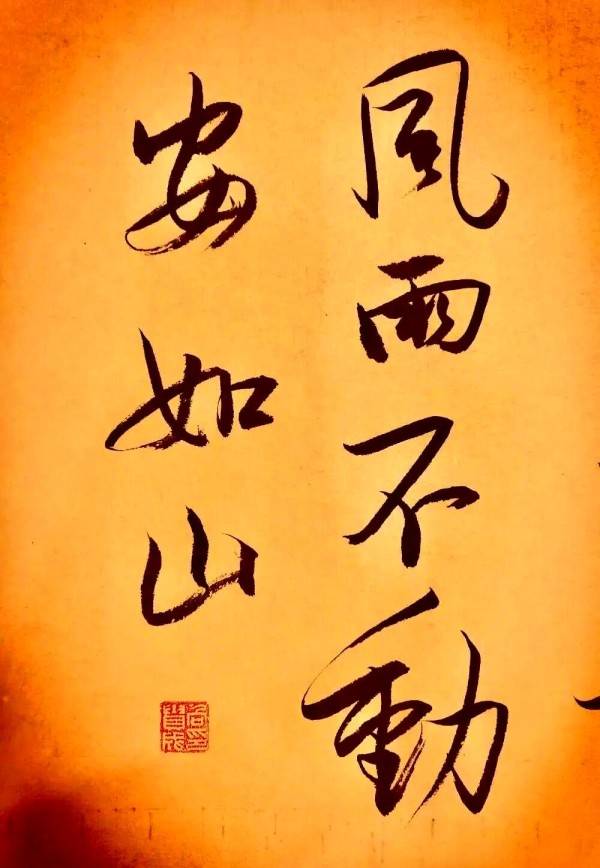 風雨不動
安如山